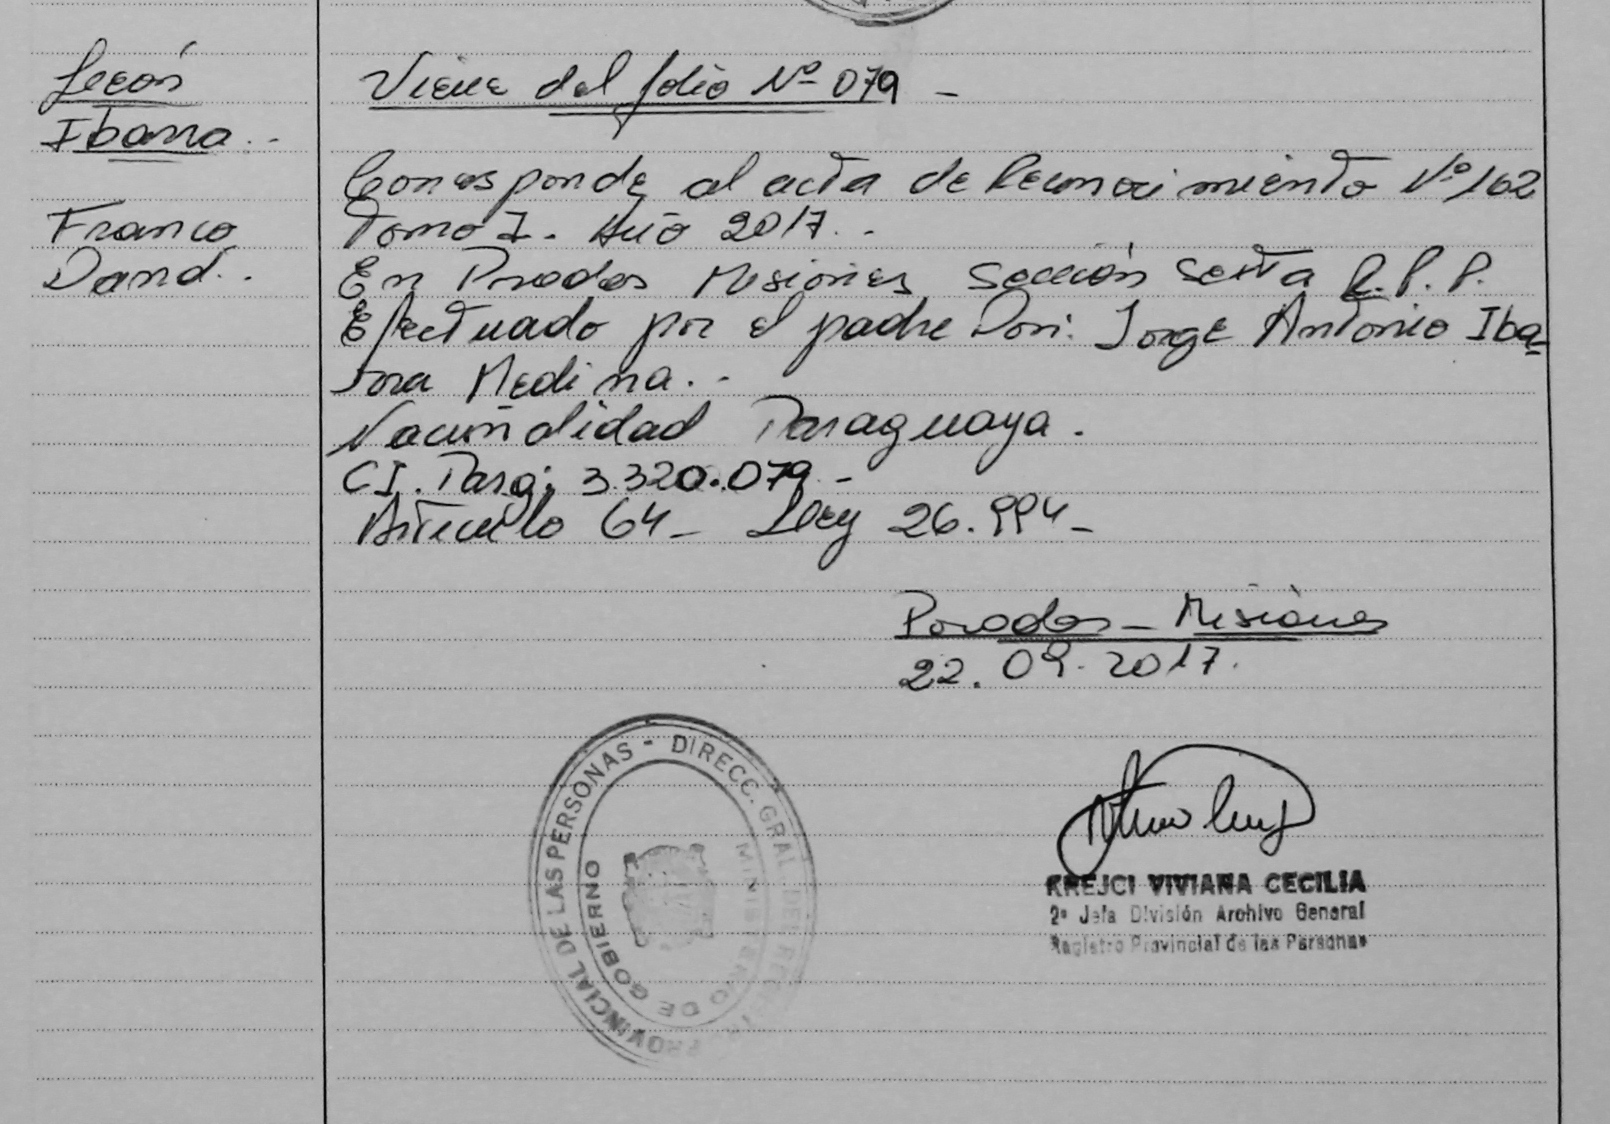 Lecón
Ibarra.-
Franco
David.-
Viene del folio Nº 079 -
Corresponde al acta de Reconocimiento Nº 162
Tomo I. Año 2017.-
En Posadas Misiones Sección Sexta R.P.P.
Efectuado por el padre Don: Jorge Antonio Iba-
rra Medina.-
Nacionalidad Paraguaya.
CI. Parg: 3.320.079.-
Artículo 64- Ley 26.994-
Posadas - Misiones
22.09.2017.
PROVINCIAL DE LAS PERSONAS - DIRECC. GRAL. DEL REGISTRO
MINISTERIO DE GOBIERNO
KREJCI VIVIANA CECILIA
2º Jefa División Archivo General
Registro Provincial de las Personas